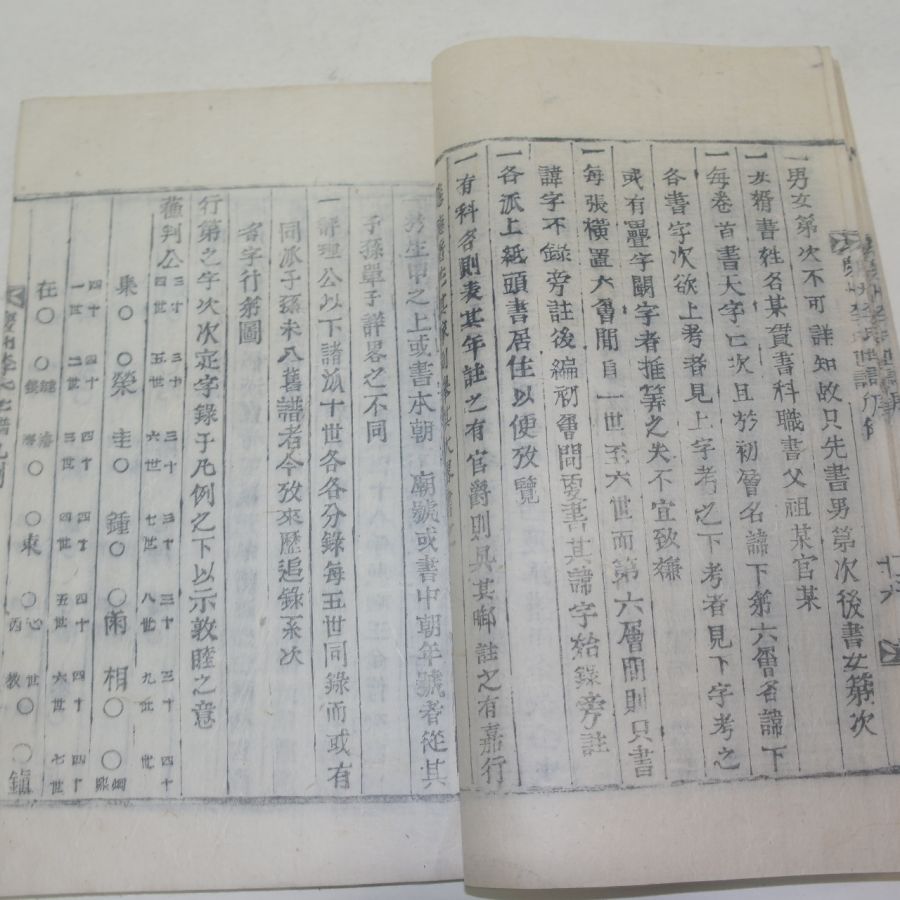 一男女第次不可詳知故只先書男第次後書女第次
一女壻書姓名某貫書科職書父祖某官某
一每卷首書大字亡次且於初層名諱下第六層名諱下
各書字次欲上考者見上字考之下考者見下字考之
或有疊字闕字者推筭之失不宜致嫌
一每張橫置六層間自一世至六世而第六層間則只書
諱字不錄旁註後編初層間更書其諱字始錄旁註
一各派上紙頭書居住以便攷覽
一有科名則表其年註之有官爵則具其啣註之有嘉行
考生甲之上或書本朝 廟號或書中朝年號者從其
子孫單子詳畧之不同
一評理公以下諸派十世各各分錄每五世同錄而或有
同派子孫未入舊譜者今攷來歷追錄系次
名字行第圖
行第之字次次定字錄于凡例之下以示敦睦之意
判公
三十四世 三十五世 三十六世 三十七世 三十八世 三十九世 四十世
集〇 〇榮 圭〇 鍾〇 〇雨 相〇 〇
四十一世 四十二世 四十三世 四十四世 四十五世 四十六世 四十七世
在〇 〇 〇 〇東 〇 〇 〇鎭